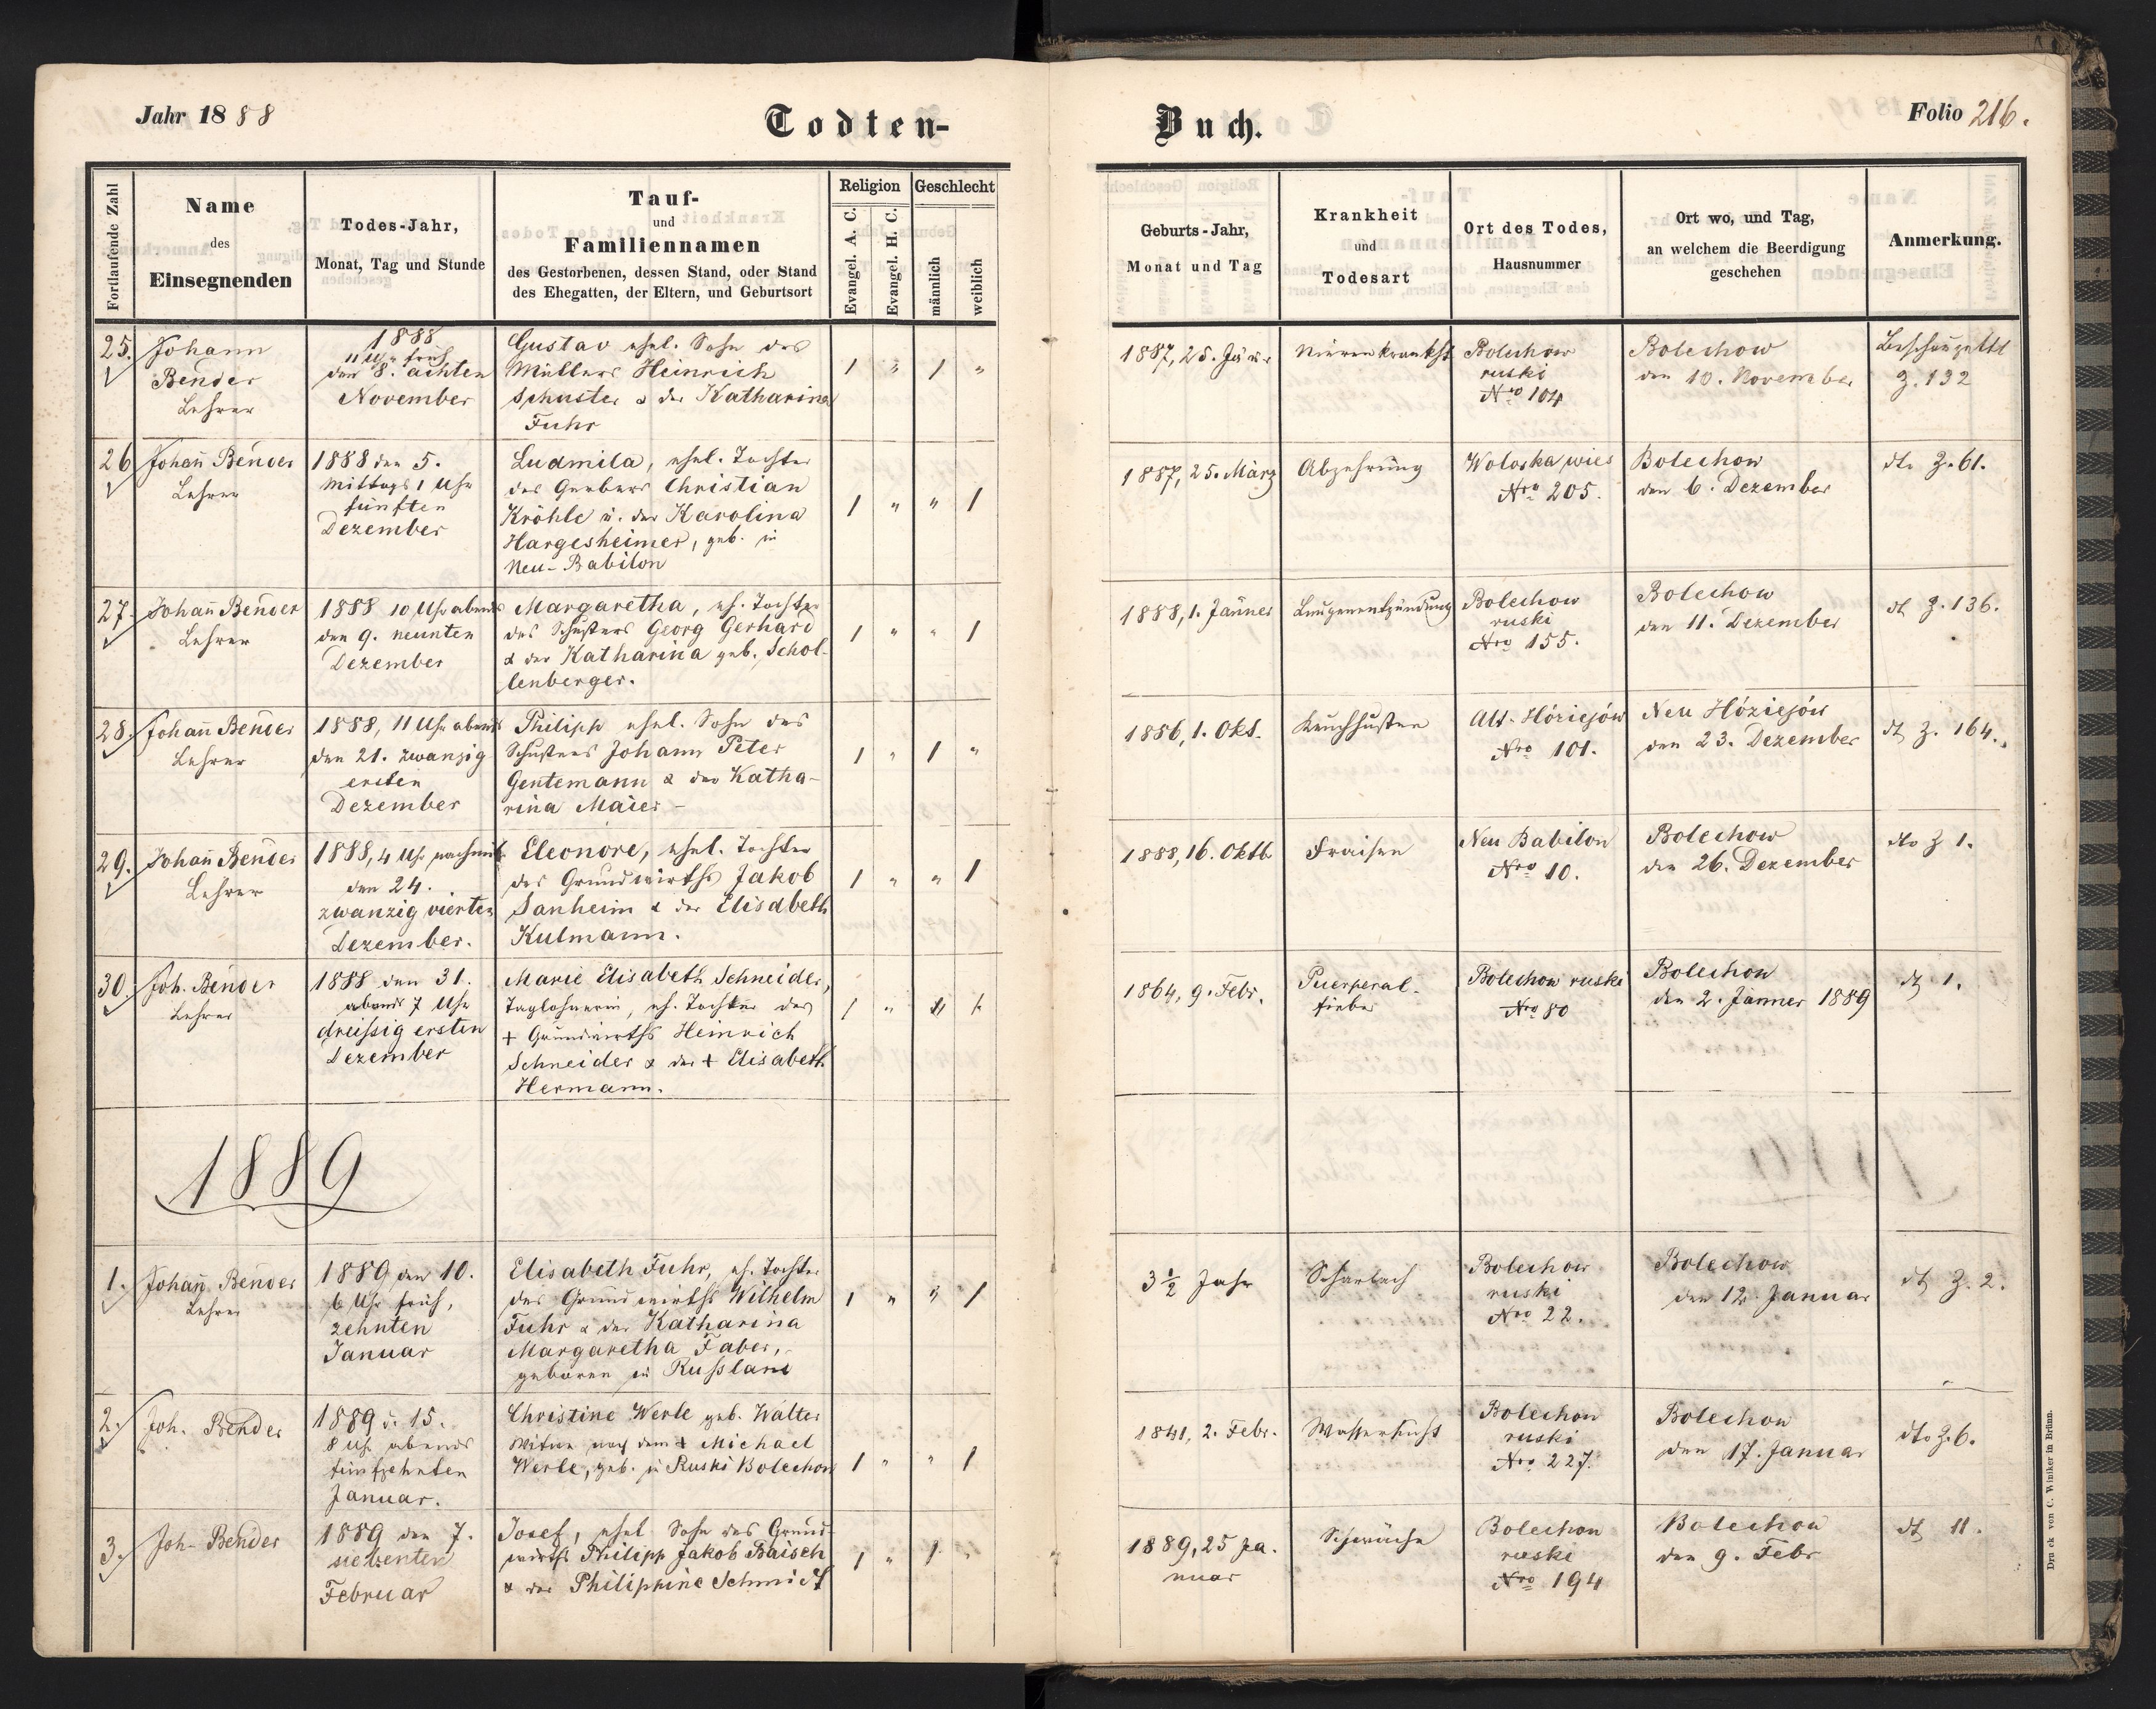 Jahr 1888
Todten-
Buch.
Folio 216.
Fortlaufende Zahl
Name
des
Einsegnenden
Todes-Jahr,
Monat, Tag und Stunde
Tauf-
und
Familiennamen
des Gestorbenen, dessen Stand, oder Stand
des Ehegatten, der Eltern, und Geburtsort
Religion
Evangel. A. C.
Evangel. H. C.
Geschlecht
männlich
weiblich
Geburts-Jahr,
Monat und Tag
Krankheit
und
Todesart
Ort des Todes,
Hausnummer
Ort wo, und Tag,
an welchem die Beerdigung
geschehen
Anmerkung.
25.
Johann
Bender
Lehrer
1888
11 Uhr früh
den 8. achten
November
Gustav ehel. Sohn des
Müllers Heinrich
Schuster & der Katharina
Fuhr
1 " 1 "
1887, 25.
Nierenkrankht
Bolechow
ruski
Nro 104
Bolechow
den 10. November
Beschauzettel
Z. 132
26
Johañ Bender
Lehrer
1888 den 5.
Mittags 1 Uhr
fünften
Dezember
Ludmila, ehel. Tochter
des Gerbers Christian
Kröhle u. der Karolina
Hargesheimer, geb. in
Neu-Babilon
1 " " 1
1887, 25. März
Abzehrung
Woloska wies
Nro 205.
Bolechow
den 6. Dezember
dto Z. 61.
27.
Johañ Bender
Lehrer
1888 10 Uhr abends
den 9. neunten
Dezember
Margaretha, eh. Tochter
des Schusters Georg Gerhard
& der Katharina geb. Schol-
lenberger.
1 " " 1
1888, 1. Jänner
Lungenentzündung
Bolechow
ruski
Nro 155.
Bolechow
den 11. Dezember
dt Z. 136.
28.
Johañ Bender
Lehrer
1888, 11 Uhr abends
den 21. zwanzig
ersten
Dezember
Philipp ehel. Sohn des
Schusters Johann Peter
Gentemann & der Katha-
rina Maier -
1 " 1 "
1886, 1. Okt.
Keuchhusten
Alt-Hóziejów
Nro 101.
Neu Hóziejów
den 23. Dezember
dt Z. 164.
29.
Johañ Bender
Lehrer
1888, 4 Uhr nachmit
den 24.
zwanzig vierten
Dezember.
Eleonore, ehel. Tochter
des Grundwirths Jakob
Sanheim & der Elisabeth
Kulmann.
1 " " 1
1888, 16. Oktb
Fraisen
Neu Babilon
Nro 10.
Bolechow
den 26. Dezember
dto Z 1.
30.
Joh. Bender
Lehrer
1888 den 31.
abends 7 Uhr
dreißig ersten
Dezember
Marie Elisabeth Schneider,
Taglöhnerin, eh. Tochter des
+ Grundwirths Heinrich
Schneider & der + Elisabeth
Hermann.
1 " " 1
1864, 9. Febr.
Puerperal-
fieber
Bolechow ruski
Nro 80
Bolechow
den 2. Jänner 1889
dt 1.
1889
1.
Johañ Bender
Lehrer
1889 den 10.
6 Uhr früh,
zehnten
Januar
Elisabeth Fuhr, eh. Tochter
des Grundwirths Wilhelm
Fuhr & der Katharina
Margaretha Faber,
geboren in Russland
1 " " 1
3 1/2 Jahr
Scharlach
Bolechow
ruski
Nro 22.
Bolechow
den 12. Januar
dt Z. 2.
2.
Joh. Bender
1889 d. 15.
8 Uhr abends
fünfzehnten
Januar.
Christine Werle geb. Walter
Witwe nach dem + Michael
Werle, geb. in Ruski Bolechow
1 " " 1
1841, 2. Febr.
Wassersucht
Bolechow
ruski
Nro 227.
Bolechow
den 17. Januar
dto Z. 6.
3.
Joh. Bender
1889 den 7.
siebenten
Februar
Josef, ehel. Sohn des Grund-
wirths Philipp Jakob Baisch
& der Philippine Schmidt
1 " 1 "
1889, 25 Ja-
nuar
Schwäche
Bolechow
ruski
Nro 194
Bolechow
den 9. Febr
dt 11.
Druck von C. Winiker in Brünn.